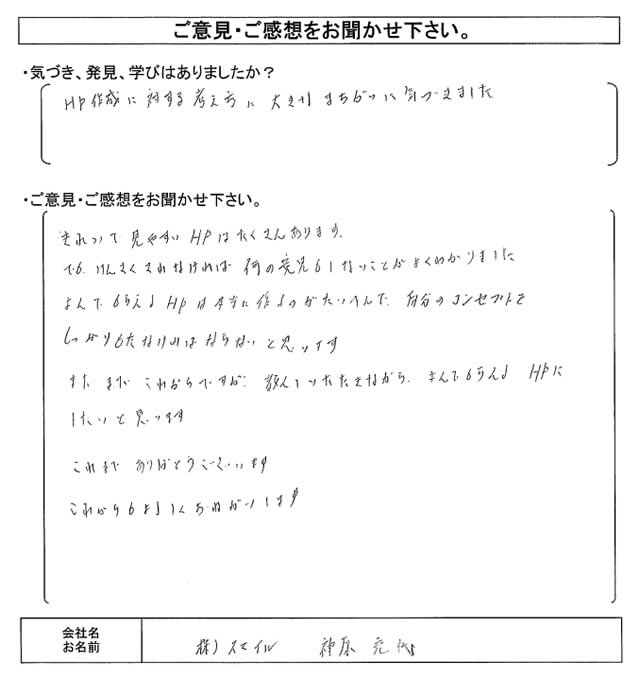 ご意見・ご感想をお聞かせ下さい。
・気づき、発見、学びはありましたか？
HP作成に対する考え方に大きなまちがいに気づきました
・ご意見・ご感想をお聞かせ下さい。
きれいで見やすいHPはたくさんあります。
でも、けんさくされなければ何の意見もしないことがよくわかりました
よんでもらえるHPは本当に作るのがたいへんで、自分のコンセプトを
しっかりもたなければならないと思います
まだまだこれからですが、教えていただきながら、よんでもらえるHPに
したいと思います
これまでありがとうございます
これからもよろしくおねがいします
会社名
お名前
株）スマイル 神原